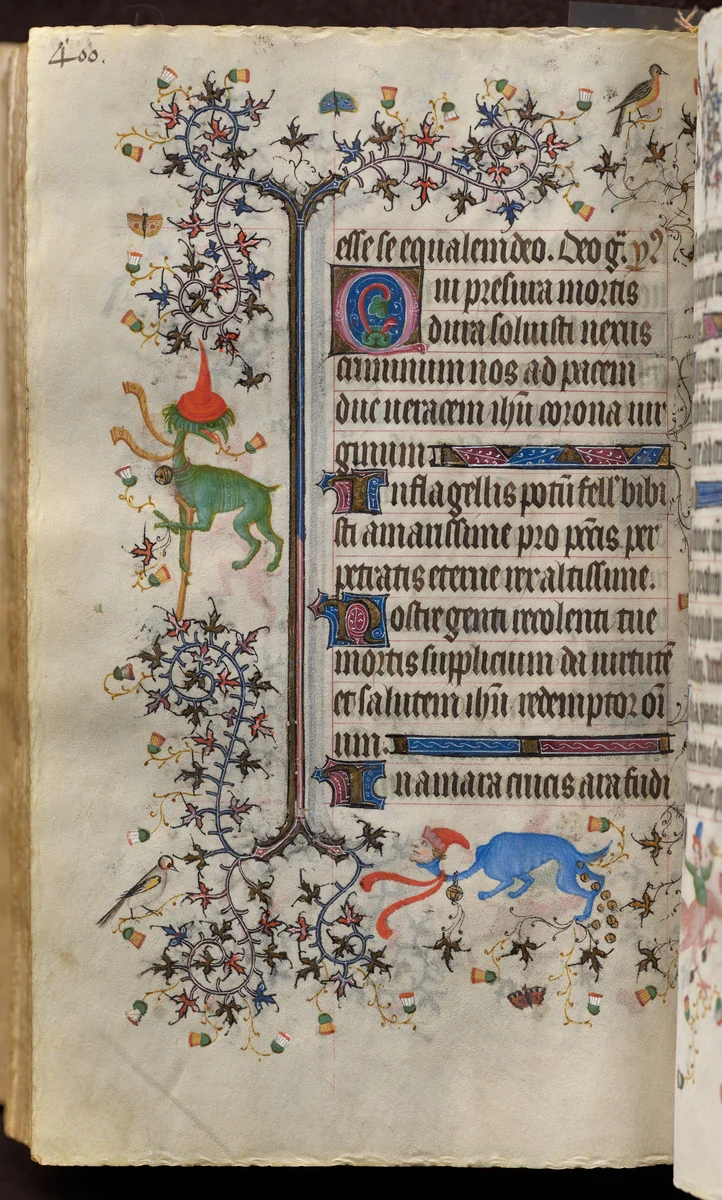 400.
esse se equalem deo. Deo gr̃. p̃s
Qui presura mortis
dura soluisti nexus
criminum nos ad pacem
duc ueracem ihũ corona uir
ginum
In flagellis potũ fell' bibi
sti amarissime pro pcc̃is per
petratis eterne rex altissime.
Nostre genti recolenti tue
mortis supplicium da uirtutẽ
et salutem ihũ redemptor oĩ
um.
In amara crucis ara fudi